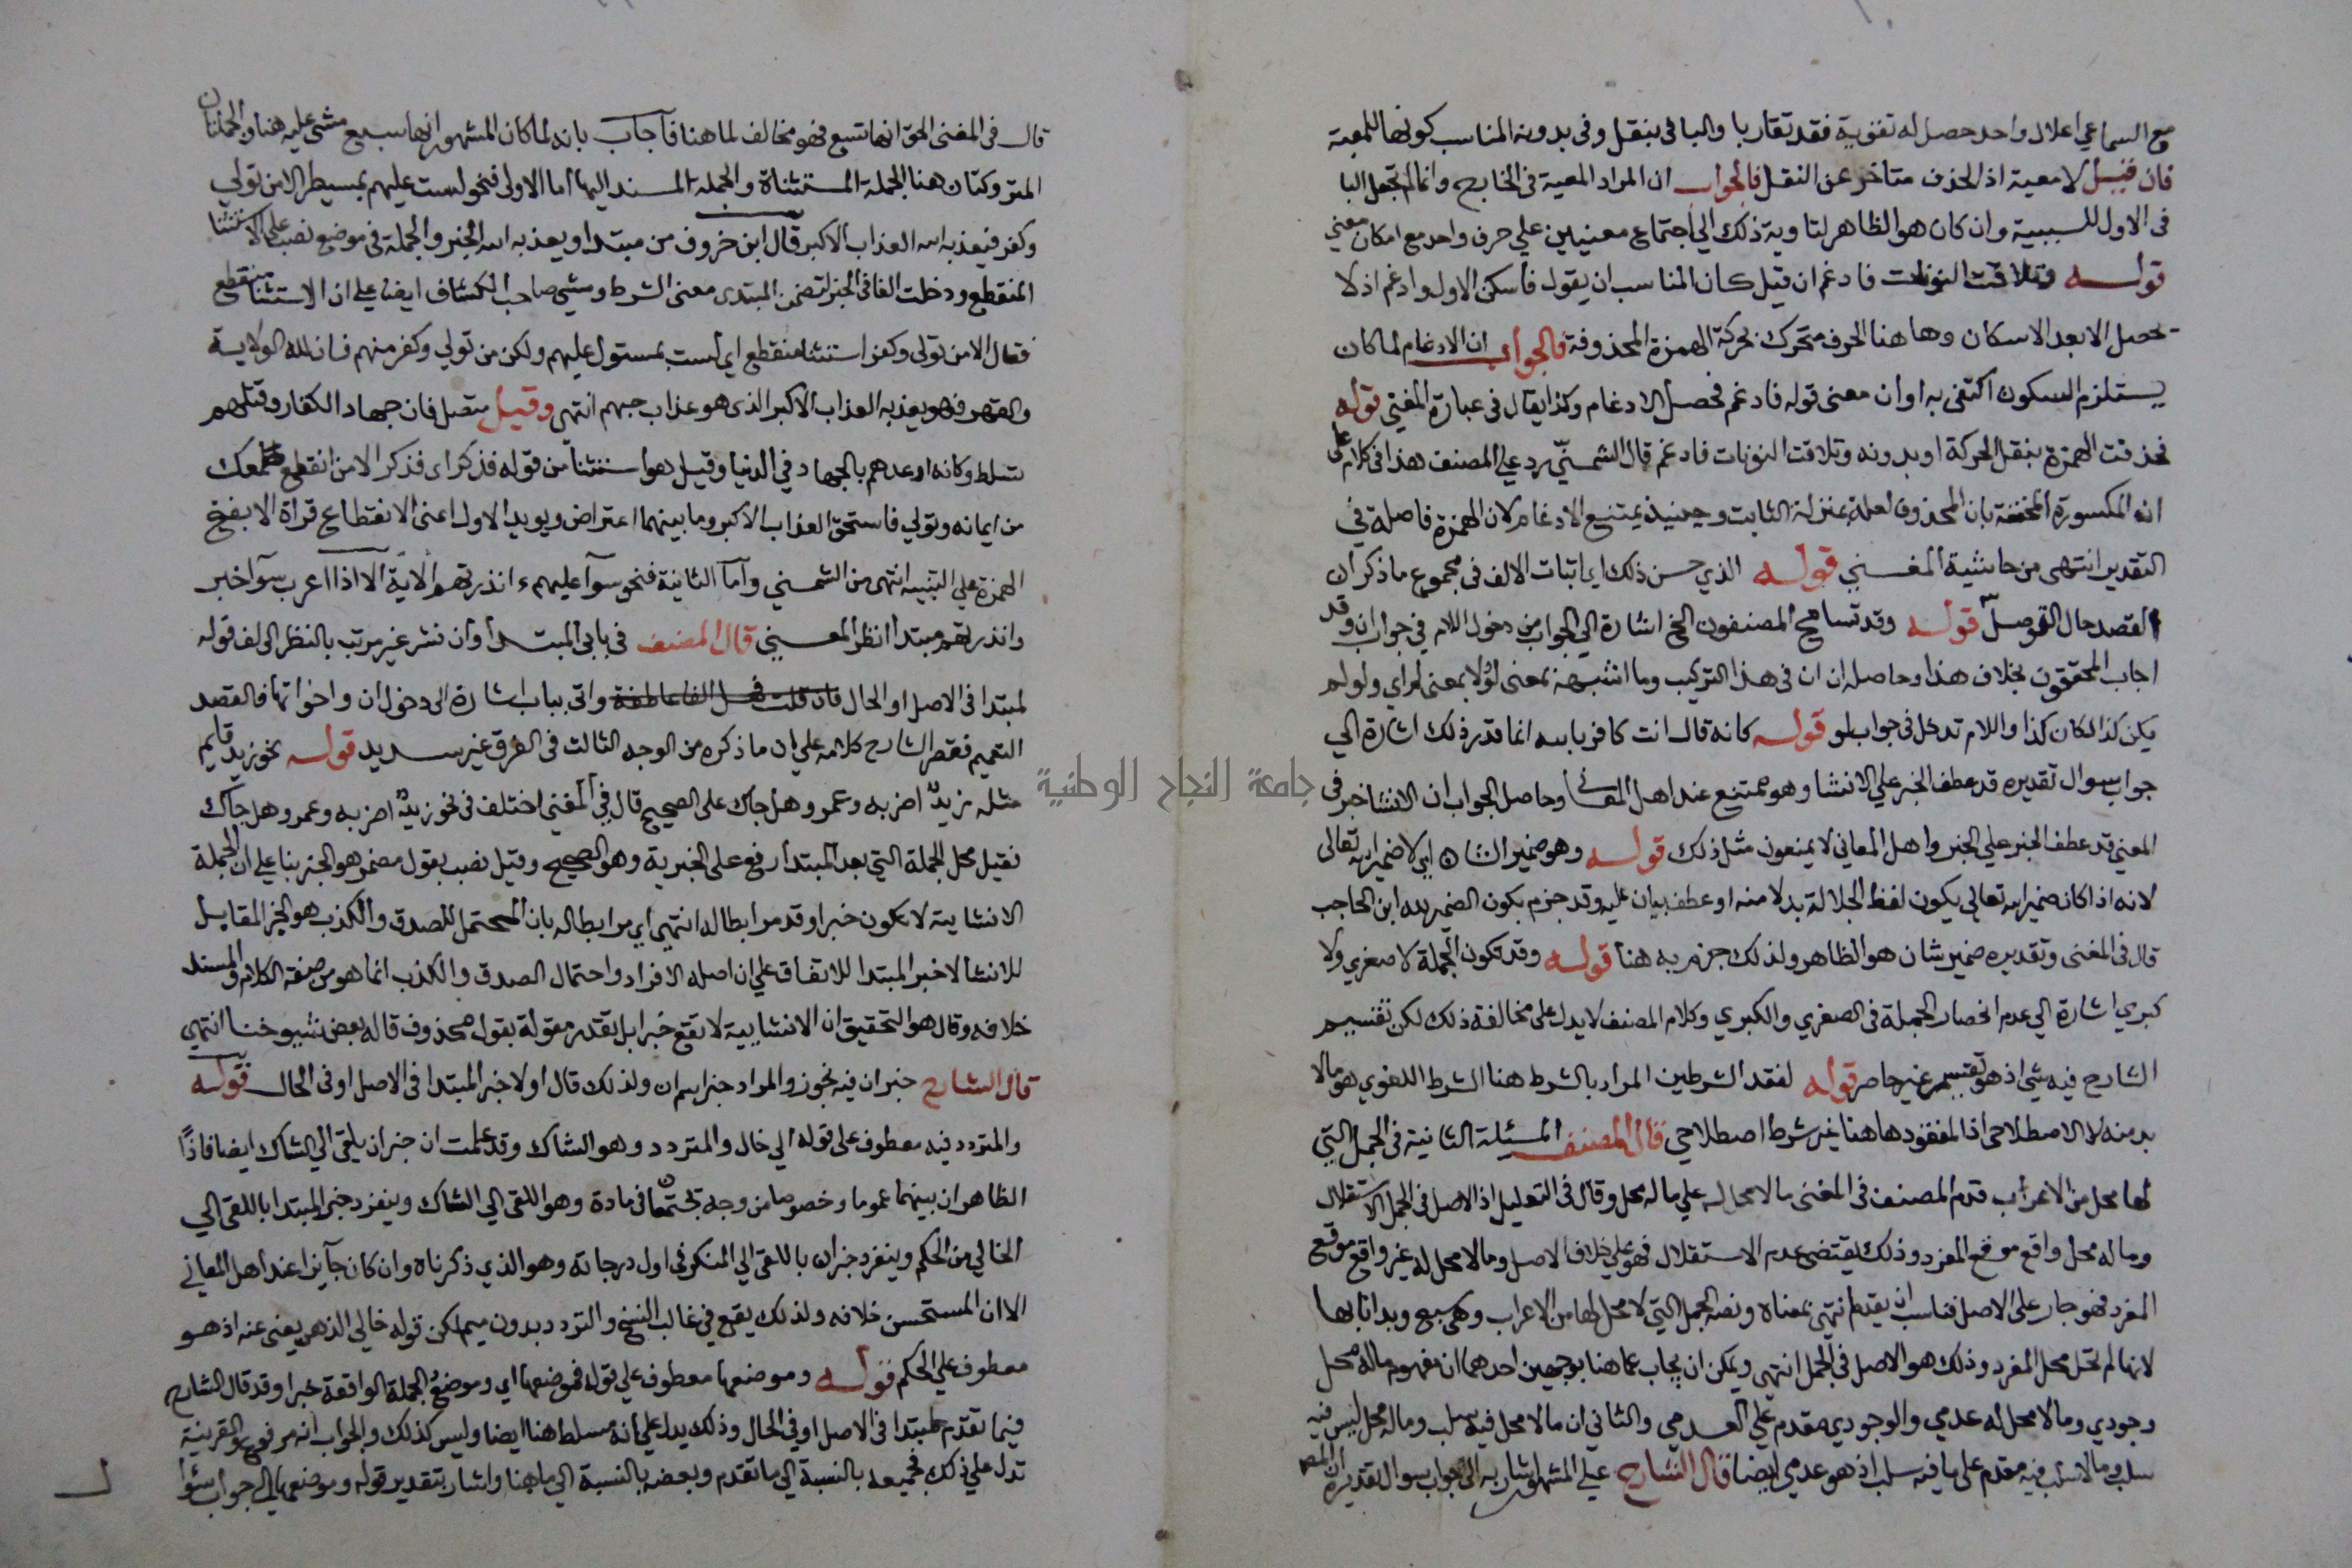 مع السماعي اعلال واحد حصل له تقوية فقد تقاربا والبا في بنقل وفي بدونه المناسب كونها للمعية
فان قيل لا معية اذ الحذف متاخر عن النقل فالجواب ان المراد المعية في الخارج وانما لم تجعل البا
في الاول للسببية وان كان هو الظاهر لتاوية ذلك الي اجتماع معنيين علي حرف واحد مع امكان معني
قوله وتلاقت النونات فادغم ان قيل كان المناسب ان يقول فاسكن الاول وادغم اذ لا
يحصل الا بعد الاسكان وها هنا الحرف متحرك بحركة الهمزة المحذوفة فالجواب ان الادغام لما كان
يستلزم السكون اكتفى به او ان معنى قوله فادغم فحصل الادغام وكذا يقال في عبارة المغني قوله
فحذفت الهمزة بنقل الحركة او بدونه وتلاقت النونات فادغم قال الشمني يرد علي المصنف هذا في كلام علي
ان المكسورة المخففة بان المحذوف لعلة بمنزلة الثابت وحينئذ يمتنع الادغام لان الهمزة فاصلة في
التقدير انتهى من حاشية المغني قوله الذي حسن ذلك اي اثبات الالف في مجموع ما ذكر ان
القصد حال التوصل قوله وقد تسامح المصنفون الخ اشارة الي الجواب من دخول اللام في جواب ان وقد
اجاب المحققون بخلاف هذا وحاصله ان ان في هذا التركيب وما اشبهه بمعنى لو لا بمعنى لم اي ولو لم
يكن كذا لكان كذا واللام تدخل في جواب لو قوله كانه قال انت كافر بالله انما قدر ذلك اشارة الي
جواب سوال تقديره قد عطف الخبر علي الانشا وهو ممتنع عند اهل المعاني وحاصل الجواب ان الانشا خبر في
المعني قد عطف الخبر علي الخبر واهل المعاني لا يمنعون مثل ذلك قوله وهو ضمير الشان اي لا ضمير الله تعالى
لانه اذا كان ضمير الله تعالى يكون لفظ الجلالة بدلا منه او عطف بيان عليه وقد جزم بكون الضمير لله ابن الحاجب
قال في المغني وتقديره ضمير شان هو الظاهر ولذلك جزم به هنا قوله وقد تكون الجملة لا صغري ولا
كبري اشارة الي عدم انحصار الجملة في الصغري والكبري وكلام المصنف لا يدل على مخالفة ذلك لكن تقسيم
الشارح فيه شي اذ هو تقسيم غير حاصر قوله لفقد الشرطين المراد بالشرط هنا الشرط اللغوي هو ما لا
بد منه لا الاصطلاحي اذ المفقود هاهنا غير شرط اصطلاحي قال المصنف المسئلة الثانية في الجمل التي
لها محل من الاعراب قدم المصنف في المغني ما لا محل له علي ما له محل وقال في التعليل اذ الاصل في الجمل الاستقلال
وما له محل واقع موقع المفرد وذلك يقتضي عدم الاستقلال فهو علي خلاف الاصل وما لا محل له غير واقع موقع
المفرد فهو جار على الاصل فناسب ان يقدم انتهى بمعناه ونصه الجمل التي لا محل لها من الاعراب وهي سبع وبدانا بها
لانها لم تحل محل المفرد وذلك هو الاصل في الجمل انتهى ويمكن ان يجاب عما هنا بوجهين احدهما ان مفهوم ما له محل
وجودي وما لا محل له عدمي والوجودي مقدم علي العدمي والثاني ان ما لا محل فيه سلب وما له محل ليس فيه
سلب وما لا سلب فيه مقدم على ما فيه سلب اذ هو عدمي ايضا قال الشارح علي المشهور اشار به الى جواب سوال تقديره ان المص
قال في المغني الحق انها تسع فهو مخالف لما هنا فاجاب بانه لما كان المشهور انها سبع مشى عليه هنا والجملتان
المتروكتان هنا الجملة المستثناة والجملة المسند اليها اما الاولى فنحو لست عليهم بمسيطر الا من تولي
وكفر فيعذبه الله العذاب الاكبر قال ابن خروف من مبتدا ويعذبه الله الخبر والجملة في موضع نصب على الاستثنا
المنقطع ودخلت الفا في الخبر لتضمن المبتدى معنى الشرط ومشى صاحب الكشاف ايضا علي ان الاستثنا منقطع
فقال الا من تولى وكفر استثنا منقطع اي لست بمستول عليهم ولكن من تولي وكفر منهم فان لله الولاية
والقهر فهو يعذبه العذاب الاكبر الذي هو عذاب جهنم انتهى وقيل متصل فان جهاد الكفار وقتلهم
تسلط وكانه اوعدهم بالجهاد في الدنيا وقيل هو استثنا من قوله فذكر اي فذكر الا من انقطع طمعك
من ايمانه وتولي فاستحق العذاب الاكبر وما بينهما اعتراض ويويد الاول اعني الانقطاع قراة الا بفتح
الهمزة علي التنبيه انتهى من الشمني واما الثانية فنحو سوآ عليهم ءانذرتهم الآية الا اذا اعرب سوآ خبر
وانذرتهم مبتدا انظر المغني قال المصنف في بابي المبتدا وان نشر غير مرتب بالنظر الي لف قوله
لمبتدا في الاصل او الحال واتى بباب اشارة الى دخول ان واخواتها فالقصد
التعميم فقصر الشارح كلامه علي ان ما ذكره من الوجه الثالث في الفرق غير سديد قوله نحو زيد قايم
مثله زيد اضربه وعمرو هل جاك على الصحيح قال في المغني اختلف في نحو زيد اضربه وعمرو هل جاك
فقيل محل الجملة التي بعد المبتدا رفع على الخبرية وهو الصحيح وقيل نصب بقول مضمر هو الخبر بنا علي ان الجملة
الانشايية لا تكون خبرا وقد مر ابطاله انتهى اي مر ابطاله بان المحتمل للصدق والكذب هو الخبر المقابل
للانشا لا خبر المبتدا للاتفاق علي ان اصله الافراد واحتمال الصدق والكذب انما هو من صفة الكلام والمسند
خلافه وقال هو التحقيق ان الانشايية لا تقع خبرا بل بتقدير مقولة بقول محذوف قاله بعض شيوخنا انتهى
قال الشارح خبر ان فيه تجوز والمراد خبر اسم ان ولذلك قال اولا خبر المبتدا في الاصل او في الحال قوله
والمتردد فيه معطوف على قوله الي خال والمتردد وهو الشاك وقد علمت ان خبر ان يلقى الي الشاك ايضا فاذا
الظاهر ان بينهما عموما وخصوصا من وجه تجتمعا في مادة وهو اللقى الي الشاك وينفرد خبر المبتدا باللقى الي
الخالي من الحكم وينفرد خبر ان باللقى الي المنكر في اول درجاته وهو الذي ذكرناه وان كان جآيزا عند اهل المعاني
الا ان المستحسن خلافه ولذلك يقع في غالب النسخ والتردد بدون ميم لكن قوله خالي الذهن يغني عنه اذ هو
معطوف علي الحكم قوله وموضعها معطوف علي قوله فموضعها اي وموضع الجملة الواقعة خبرا وقد قال الشارح
فيما تقدم لمبتدا في الاصل او في الحال وذلك يدل علي انه مسلط هنا ايضا وليس كذلك والجواب انه مرفوع والقرينة
تدل علي ذلك فجميعه بالنسبة الي ما تقدم وبعضه بالنسبة الي ما هنا واشار بتقدير قوله وموضعها الي جواب سؤا
جامعة النجاح الوطنية